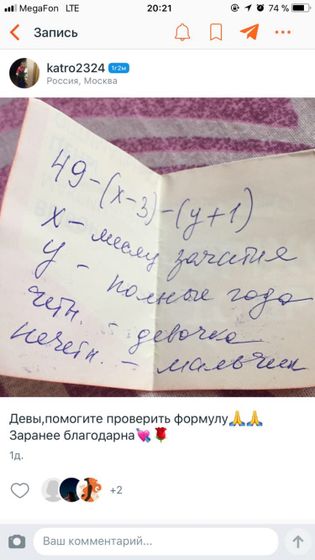 MegaFon LTE 20:21 74 %
Запись
katro2324 1г2м
Россия, Москва
49-(x-3)-(y+1)
x - месяц зачатия
y - полные года
четн. - девочка
нечетн. - мальчик
Девы,помогите проверить формулу🙏🙏
Заранее благодарна💘🌹
1д.
+2
Ваш комментарий...